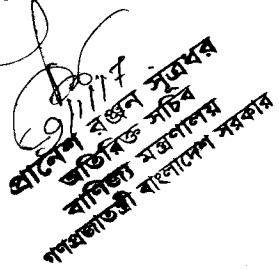 প্রানেশ রঞ্জন সূত্রধর
অতিরিক্ত সচিব
বাণিজ্য মন্ত্রণালয়
গণপ্রজাতন্ত্রী বাংলাদেশ সরকার